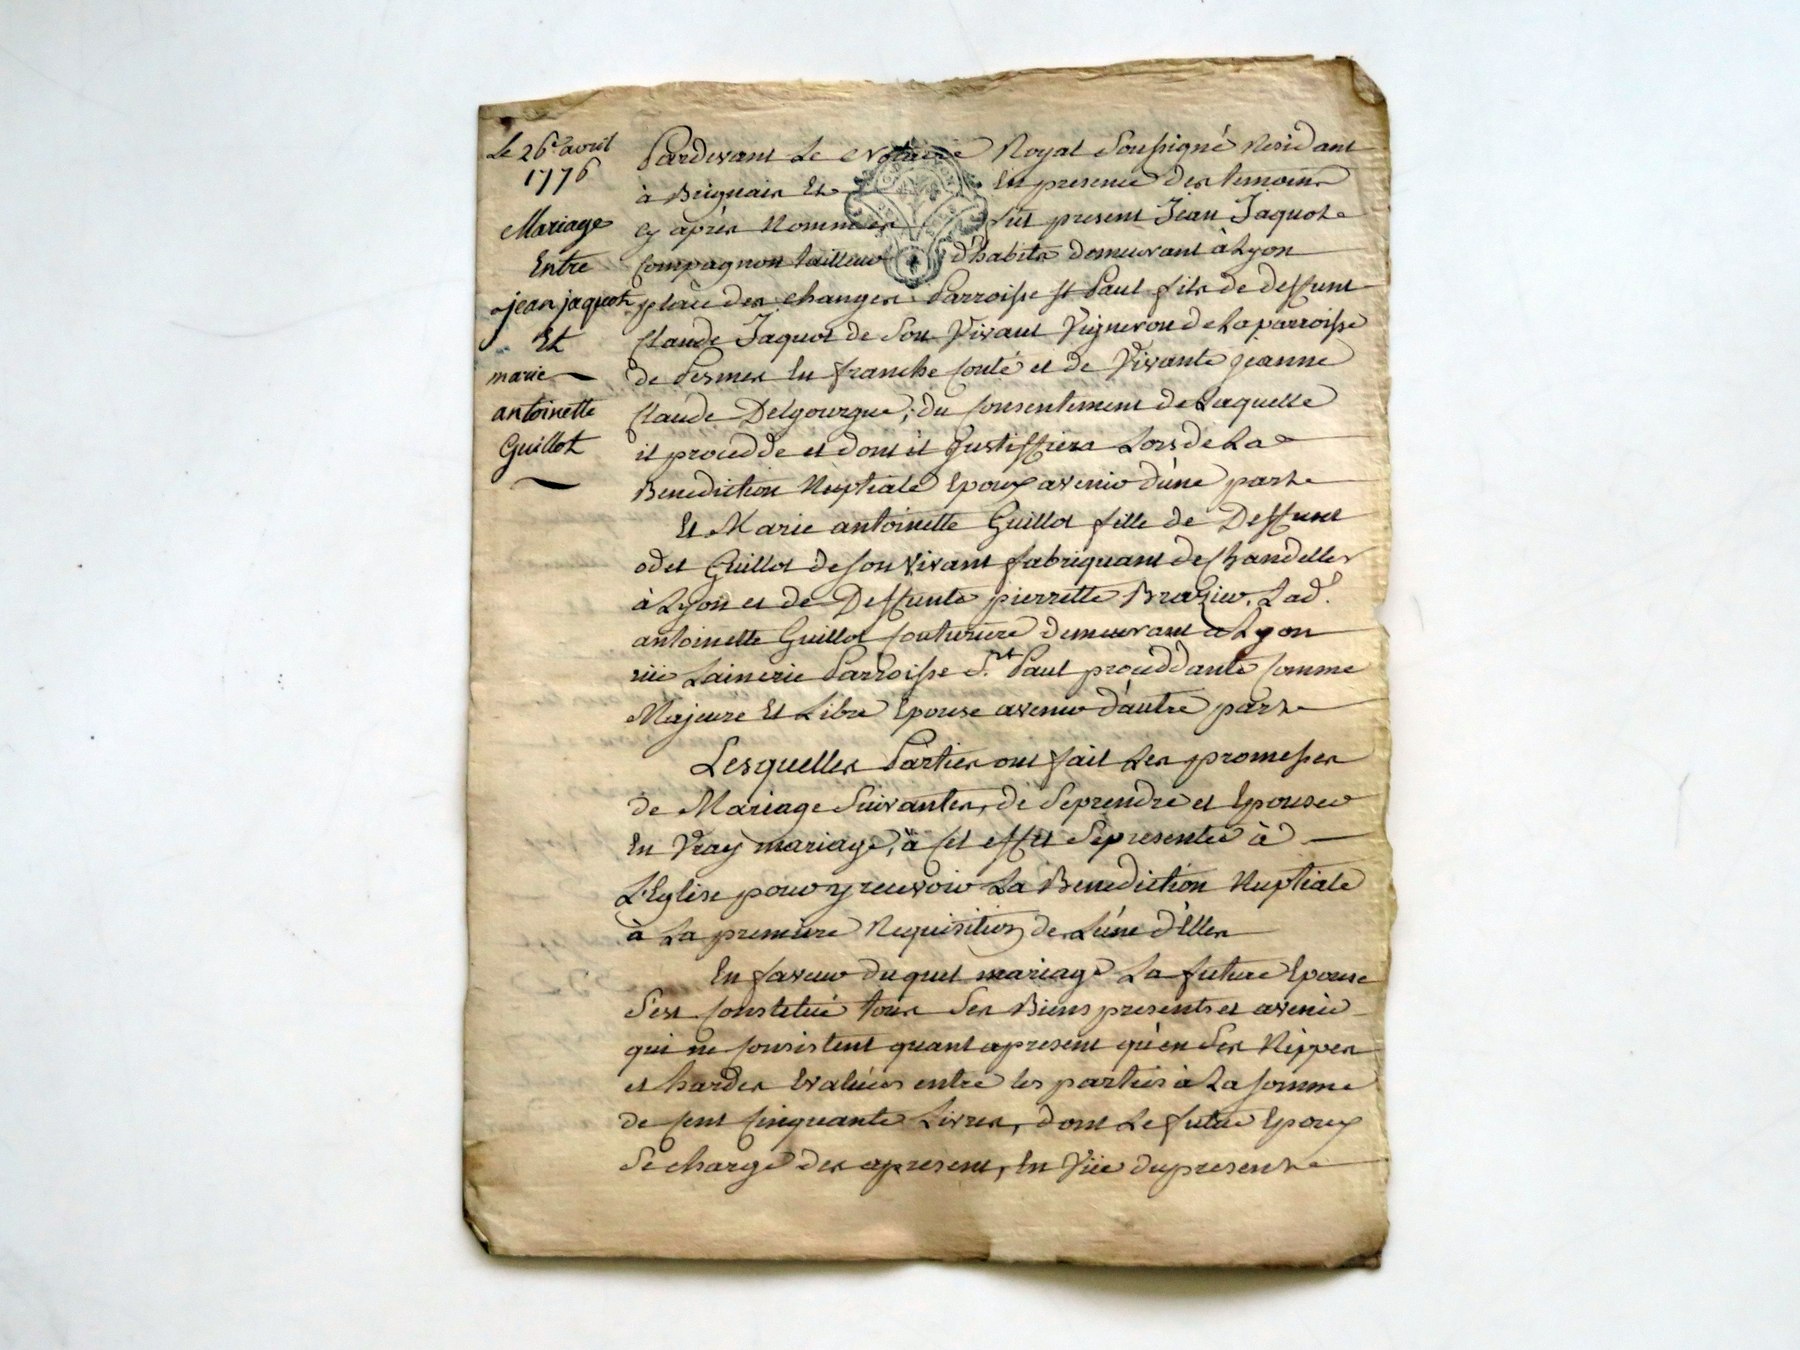 Le 26e avril
1776
Mariage
Entre
jean jaquot
Et
marie
antoinette
Guillot
Pardevant Le Notaire Royal Soussigné Residant
à Brignais Et En presence des temoins
cy après Nommés fut present Jean Jaquot
compagnon tailleur d'habits demeurant à Lyon
place des changes Parroisse st Paul fils de deffunt
Claude Jaquot de Son Vivant Vigneron de La parroisse
de Pesmes En franche Conté et de Vivante jeanne
Claude Delgourgue, du Consentement de Laquelle
il procedde et dont il Justiffiera Lors de La
Benediction Nuptiale Epoux avenir d'une part
Et Marie antoinette Guillot fille de Deffunt
odet Guillot de son vivant fabriquant de Chandelles
à Lyon et de Deffunte pierrette Brazier, Lad.
antoinette Guillot Couturiere demeurant à Lyon
rüe Lainerie Parroisse St. Paul proceddante Comme
Majeure Et Libre Epouse avenir d'autre part
Lesquelles Parties ont fait Les promesses
de Mariage Suivantes, de Se prendre et Epouser
En Vray mariage, à Cet effet Se presenter à
L'Eglise pour y recevoir La Benediction Nuptiale
à La premiere Requisition de L'une d'Elles
En faveur du quel mariage La future Epouse
S'est Constitué tous Ses Biens presents et avenir
qui ne Consistent quant apresent qu'en Ses Nippes
et hardes Evaluées entre les parties à La somme
de Cent Cinquante Livres, dont Le futur Epoux
Se charge des apresent, En Vüe du present